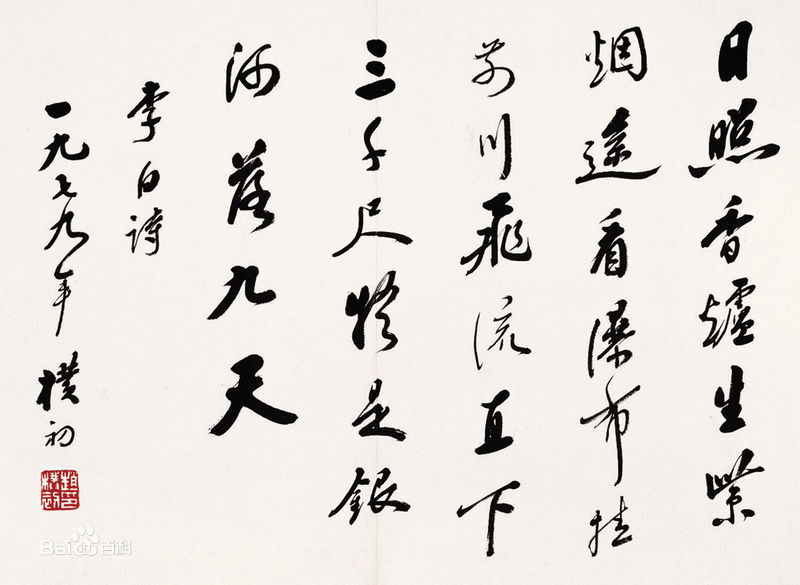 日照香爐生紫
烟遥看瀑布挂
前川飛流直下
三千尺疑是銀
河落九天
李白詩
一九七九年 樸初
趙樸初印
Baidu百科